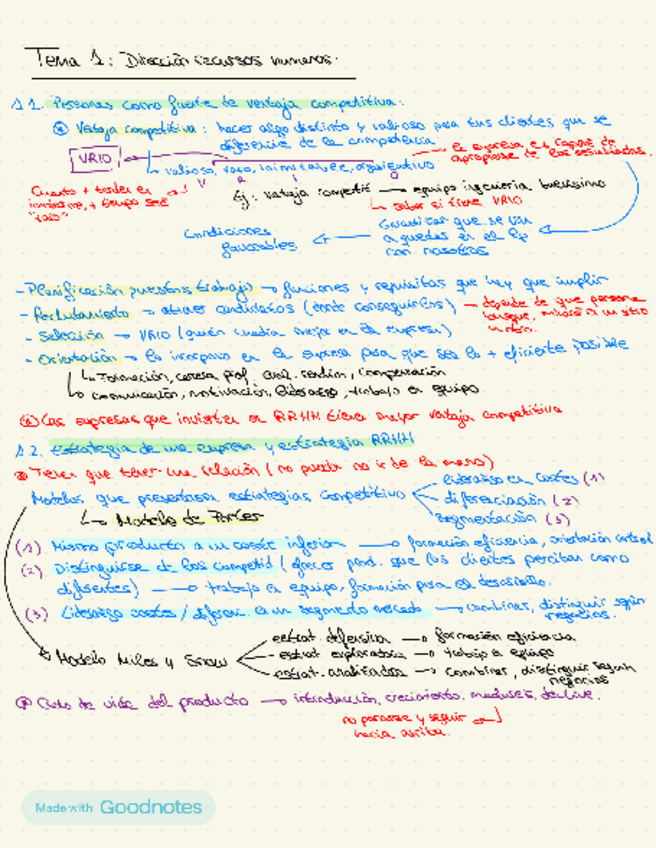 Tema 1: Dirección recursos humanos.
1.1. Personas como fuente de ventaja competitiva:
Ventaja competitiva: hacer algo distinto y valioso para tus clientes que se
diferencie de la competencia
VRIO
valioso, raro, inimitable, organizativo
V R I O
la empresa es capaz de
apropiarse de los resultados.
Cuanto + tarden en
imitarme, + tiempo seré
"raro"
Ej: ventaja competit → equipo ingeniería buenísimo
saber si tiene VRIO
Garantizar que se van
a quedar en el
con nosotros
Condiciones
favorables
- Planificación puestos trabajo → funciones y requisitos que hay que cumplir
- Reclutamiento → atraer candidatos (donde conseguirlos) → depende de que persona
busque, miraré en un sitio
u otro.
- Selección → VRIO (quién cuadra mejor en la empresa)
- Orientación → lo incorporo en la empresa para que sea lo + eficiente posible
Formación, carrera prof, eval. rendim, compensación
comunicación, motivación, liderazgo, trabajo en equipo
Las empresas que invierten en RRHH tienen mayor ventaja competitiva
1.2. Estrategia de una empresa y estrategia RRHH
Tienen que tener una relación (no pueden no ir de la mano)
Modelos que presentan estrategias competitivo
liderazgo en costes (1)
diferenciación (2)
segmentación (3)
Modelo de Porter
(1) Mismo producto a un coste inferior → formación eficiencia, orientación control
(2) Distinguirse de los competid (ofrecer prod. que los clientes perciban como
diferentes) → trabajo en equipo, formación para el desarrollo.
(3) Liderazgo costes / diferen. en un segmento mercado → combinar, distinguir según
negocios.
Modelo Miles y Snow
estrat. defensiva → formación eficiencia
estrat. exploradora → trabajo en equipo
estrat. analizadora → combinar, distinguir según
negocios
Ciclo de vida del producto → introducción, crecimiento, madurez, declive.
no pararse y seguir
hacia arriba.
Made with Goodnotes